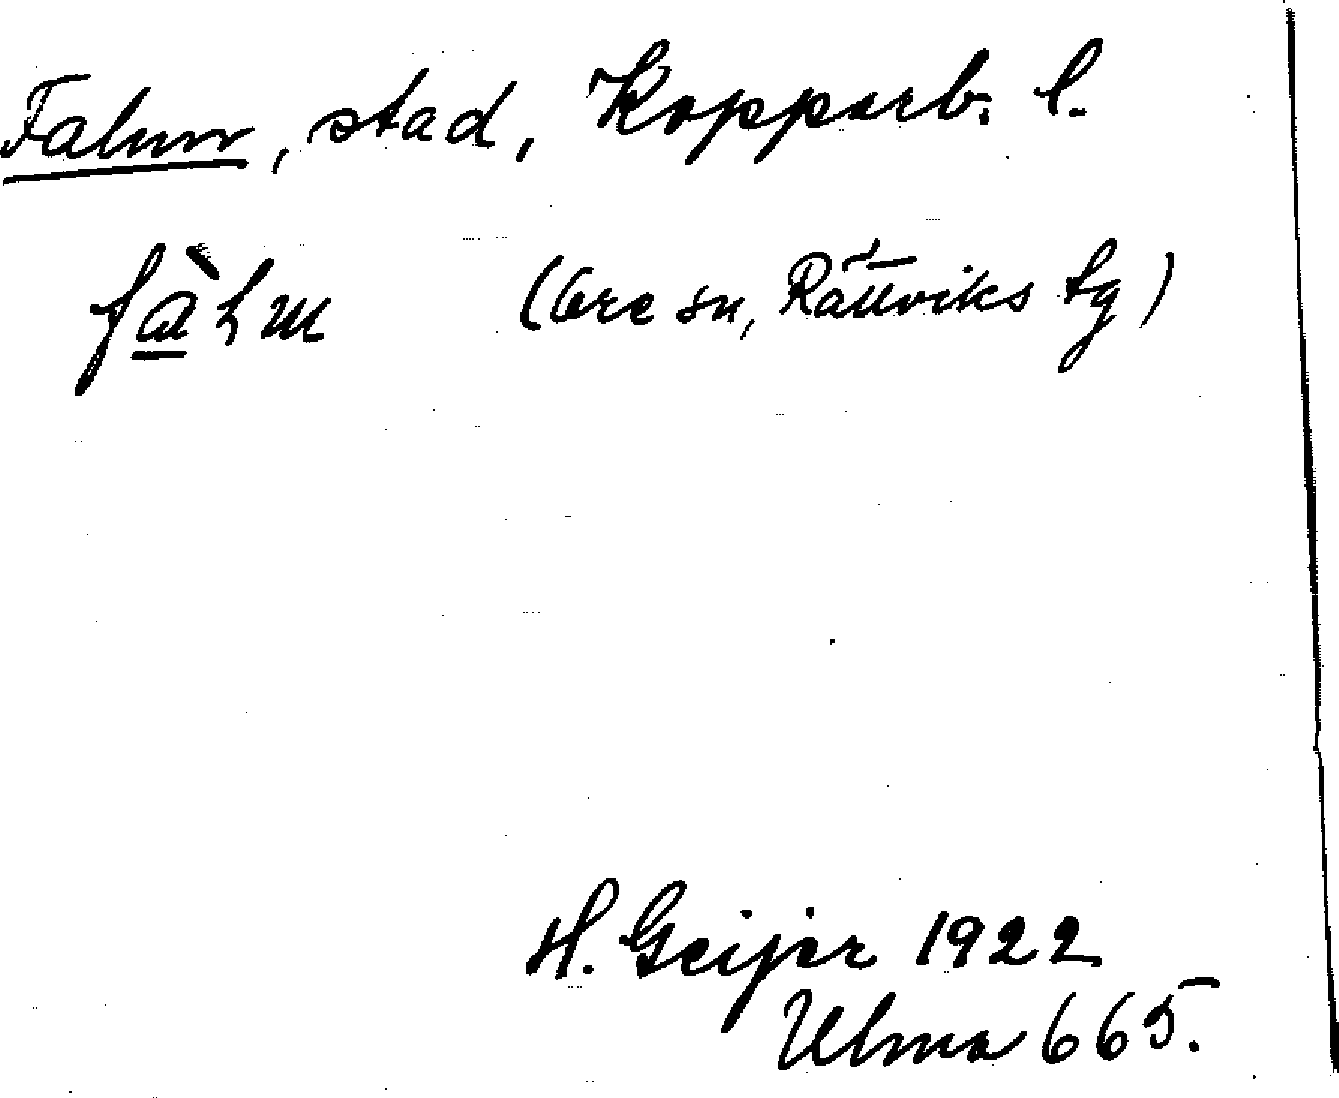 Falun, stad, Kopparb. l.
fàlun (Ore sn, Rättviks tg)
H. Geijer 1922
Ulma 665.